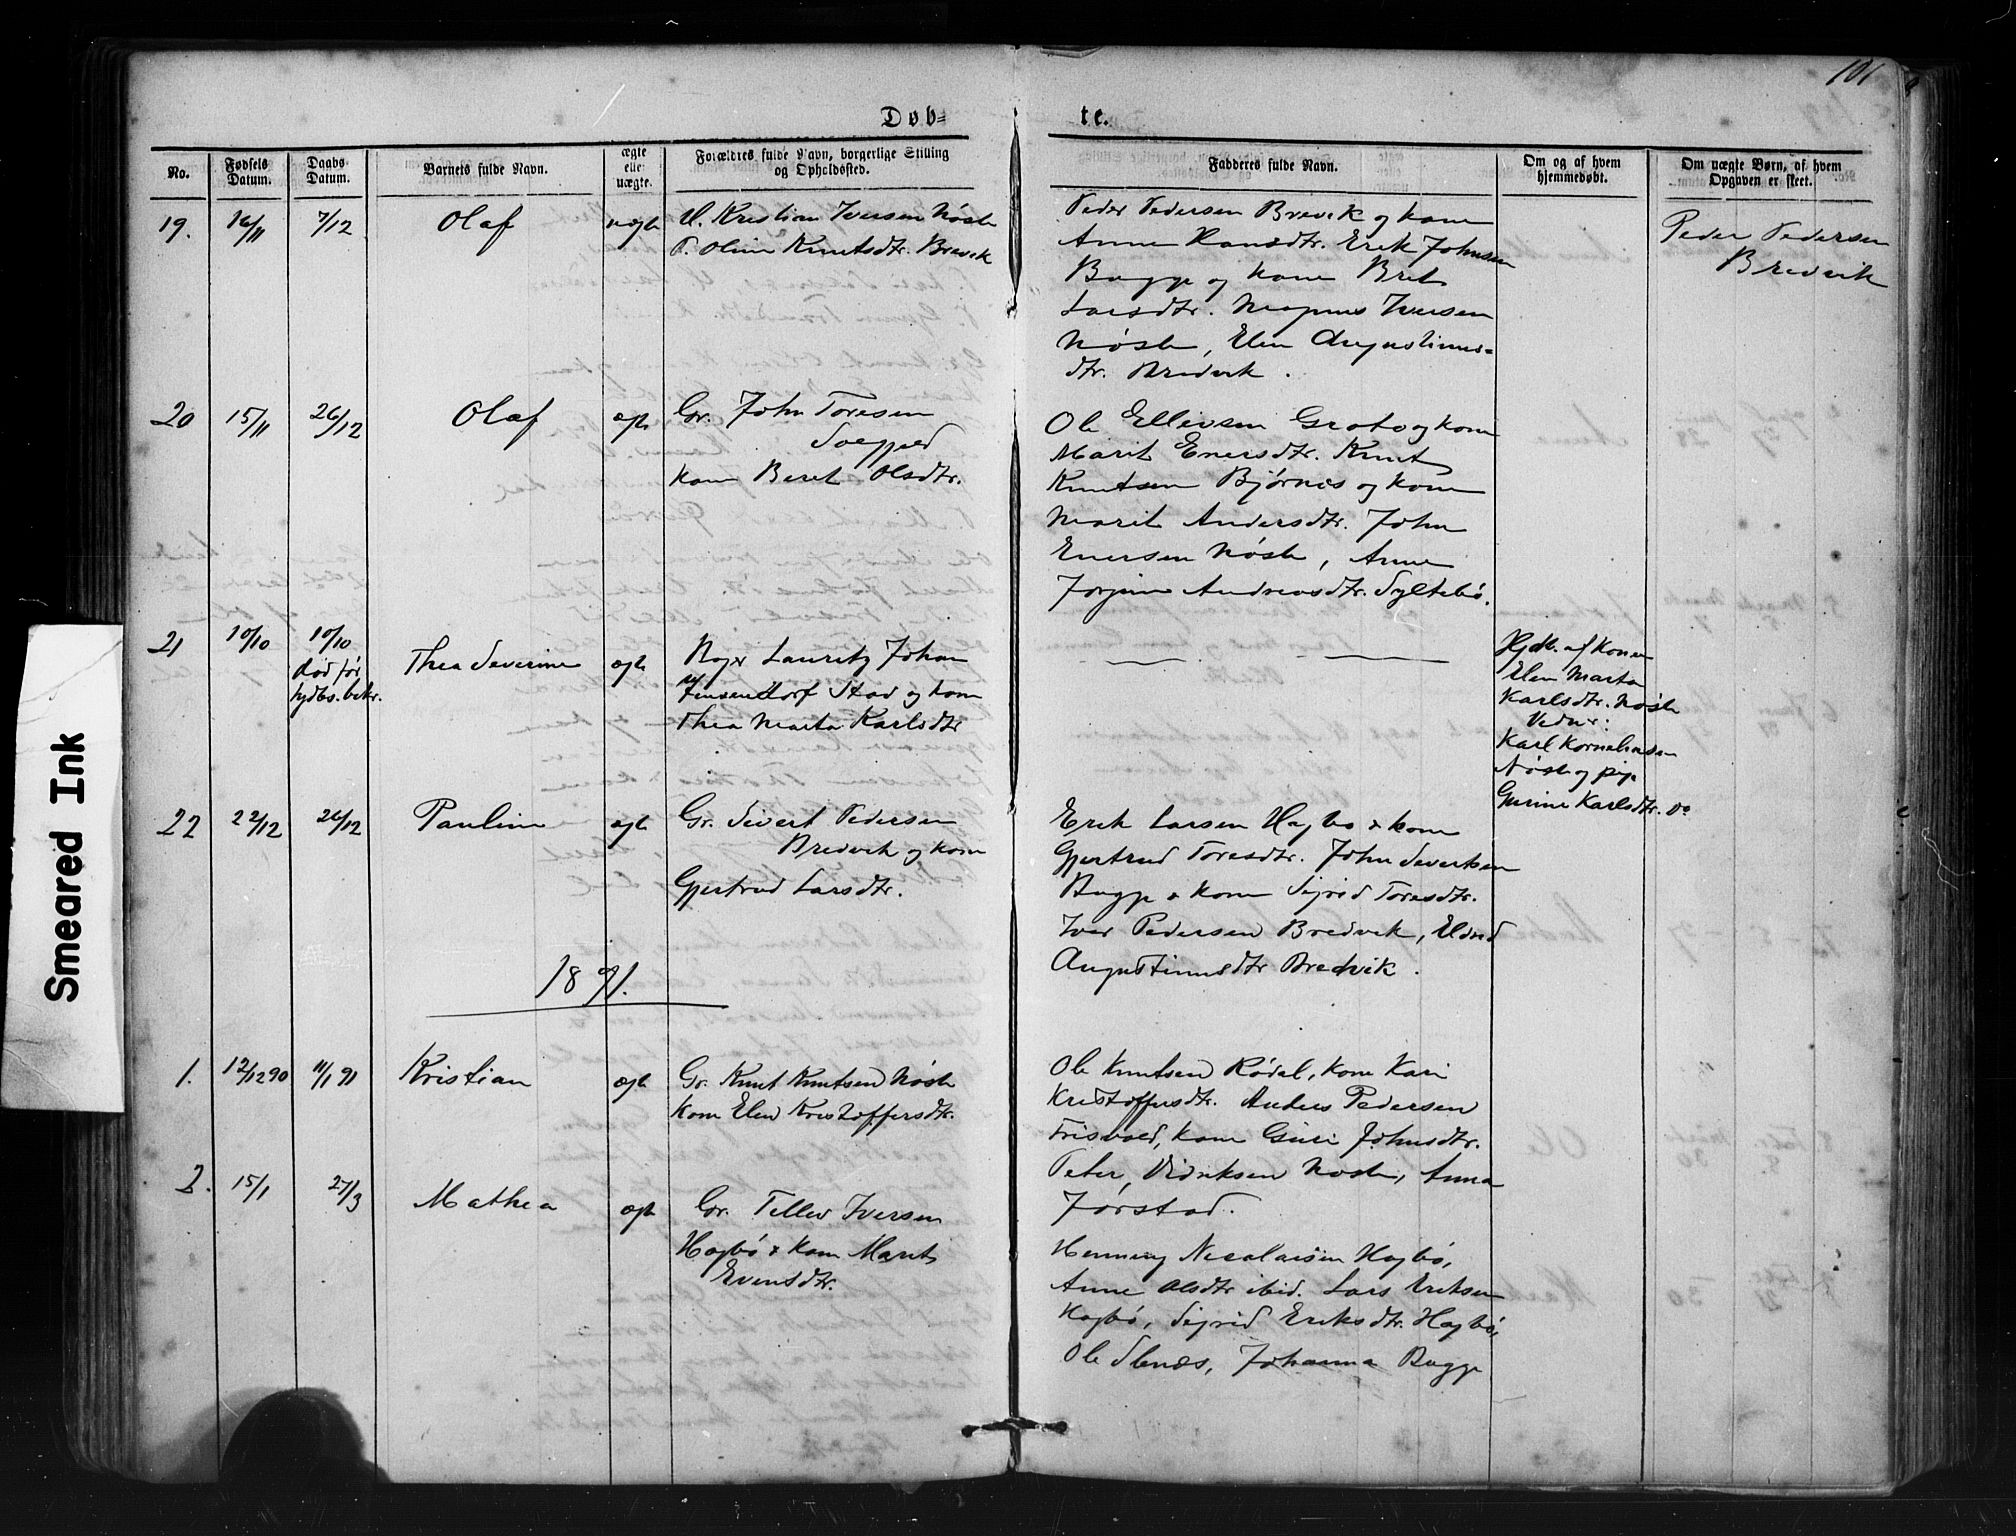 101
Døb=
te.
No.
Fødsels Datum.
Daabs Datum.
Barnets fulde Navn.
ægte eller uægte.
Forældres fulde Navn, borgerlige Stilling
og Opholdssted.
Fadderes fulde Navn.
Om og af hvem
hjemmedøbt.
Om uægte Børn, af hvem
Opgaven er skeet.
19. 16/11 7/12 Olaf uægte
U. Kristian Iversen Nøste
P. Oline Knutsdtr. Brevik
Peder Pedersen Brevik og kone
Anne Hansdtr. Erik Johnsen
Bugge og kone Bret
Larsdtr. Magnus Iversen
Nøste, Elen Augustinus=
dtr. Bredvik.
Peder Pedersen
Bredvik
20 15/11 26/12 Olaf ægte
Gr. John Toresen
kone Beret Olsdtr.
Ole Ellevsen Grotø og kone
Marit Enersdtr. Knut
Knutsen Bjørnes og kone
Marit Andersdtr. John
Enersen Nøste, Anne
Jørgine Andreasdtr. Syltebø.
21 10/10 10/10
død før
hjdbs. bekr.
Thea Severine ægte
Lauritz Johan
Stad og kone
Thea Marta Karlsdtr
Hjdb. af konen
Elen Marta
Karlsdtr. Nøste
Vidner:
Karl Korneliussen
Nøste og pige
Gurine Karlsdtr. do
22 22/12 26/12 Pauline ægte
Gr. Sivert Pedersen
Bredvik og kone
Gjertrud Larsdtr.
Erik Larsen Hagbø & kone
Gjertrud Toresdtr. John Sivertsen
Bugge & kone Sigrid Toresdtr.
Iver Pedersen Bredvik, Eldrid
Augustinusdtr Bredvik.
1891.
1. 12/12 90 11/1 91 Kristian ægte
Gr. Knut Knutsen Nøste
kone Elen Kristoffersdtr.
Ole Knutsen Rødal, kone Kari
Kristoffersdtr. Anders Pedersen
Frisvold, kone Guri Johnsdtr.
Peter Didriksen Nøste, Anna
Jørstad.
2. 15/1 27/3 Mathea ægte
Gr. Tellev Iversen
Hagbø & kone Marit
Evensdtr.
Henning Nicolaisen Hagbø,
Anne Olsdtr ibid. Lars Eriksen
Hagbø, Sigrid Eriksdtr. Hagbø,
Ole Stenæs, Johanna Bugge
Smeared Ink